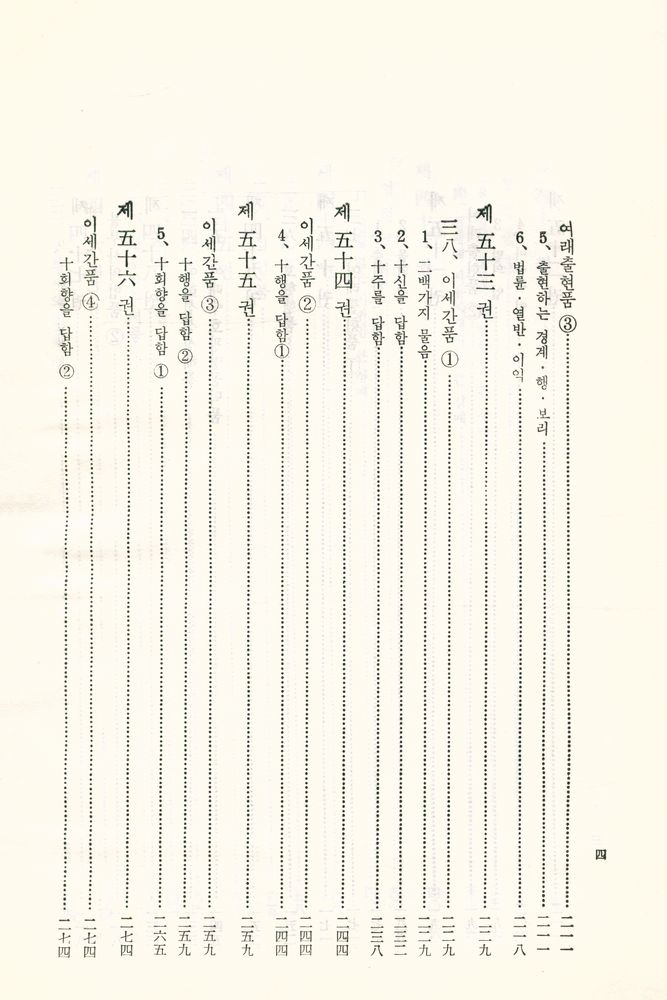 여래출현품 ③ 二一一
5、출현하는 경계·행·보리 二一一
6、법륜·열반·이익 二一八
제 五十三 권 二二九
三八、이세간품 ① 二二九
1、二백가지 물음 二二九
2、十신을 답함 二三二
3、十주를 답함 二三八
제 五十四 권 二四四
이세간품 ② 二四四
4、十행을 답함 ① 二四四
제 五十五 권 二五九
이세간품 ③ 二五九
十행을 답함 ② 二五九
5、十회향을 답함 ① 二六五
제 五十六 권 二七四
이세간품 ④ 二七四
十회향을 답함 ② 二七四
四